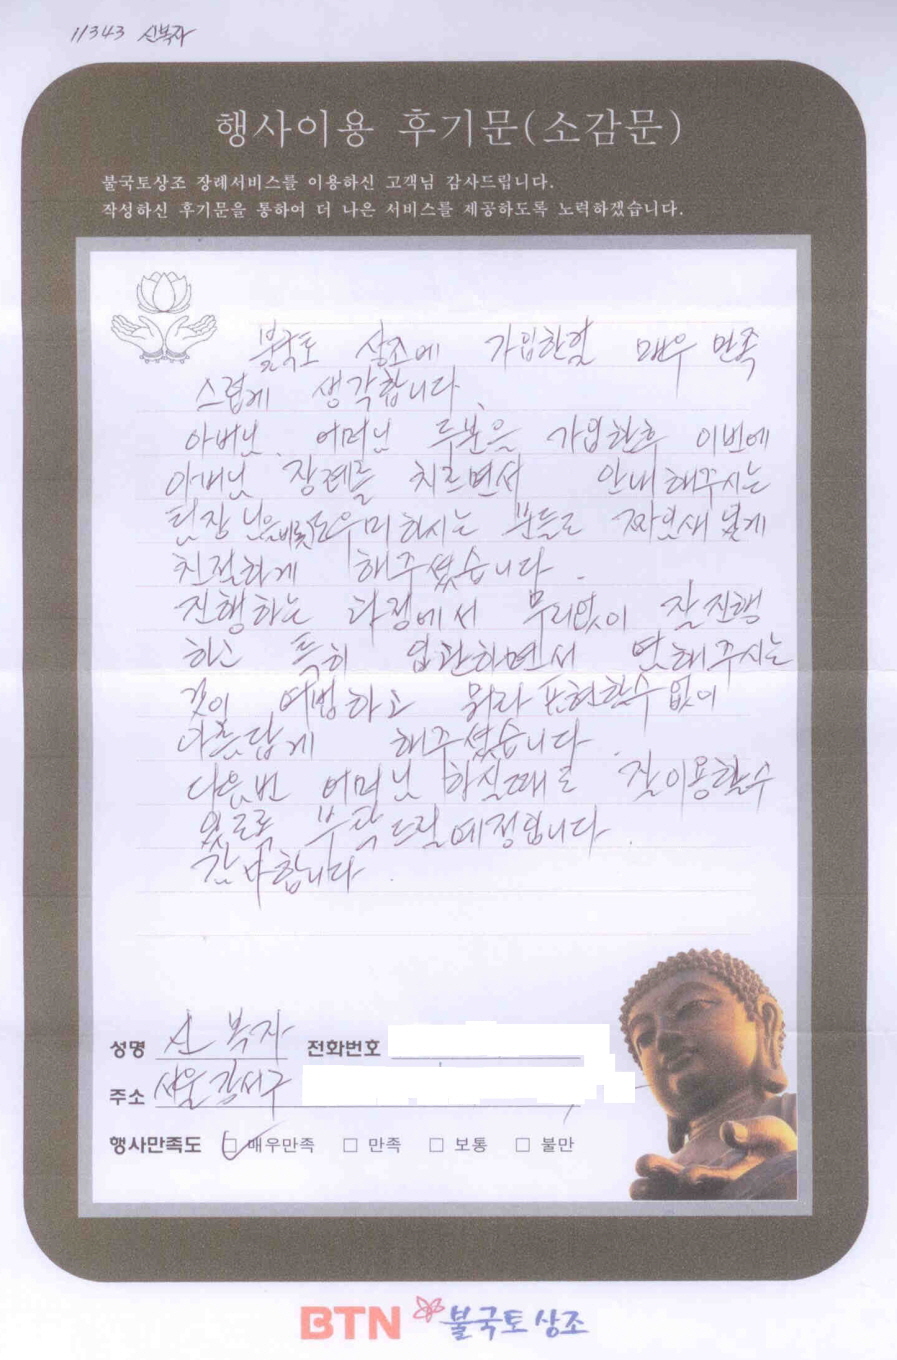 11343 신복자
행사이용 후기문(소감문)
불국토상조 장례서비스를 이용하신 고객님 감사드립니다.
작성하신 후기문을 통하여 더 나은 서비스를 제공하도록 노력하겠습니다.
불국토 상조에 가입한걸 매우 만족
스럽게 생각합니다.
아버님. 어머님 두분을 가입한후 이번에
아버님 장례를 치르면서 안내해주시는
팀장님을비롯 도우미하시는 분들로 짜임새 있게
친절하게 해주셨습니다.
진행하는 과정에서 무리없이 잘진행
하고 특히 입관하면서 염해주시는
것이 뭐라 표현할수 없이
아름답게 해주셨습니다.
다음번 어머님 하실때로 잘이용할수
있도록 부탁드릴예정입니다.
감사합니다.
성명 신복자 전화번호
주소 서울 강서구
행사만족도 ☑ 매우만족 □ 만족 □ 보통 □ 불만
BTN 불국토상조